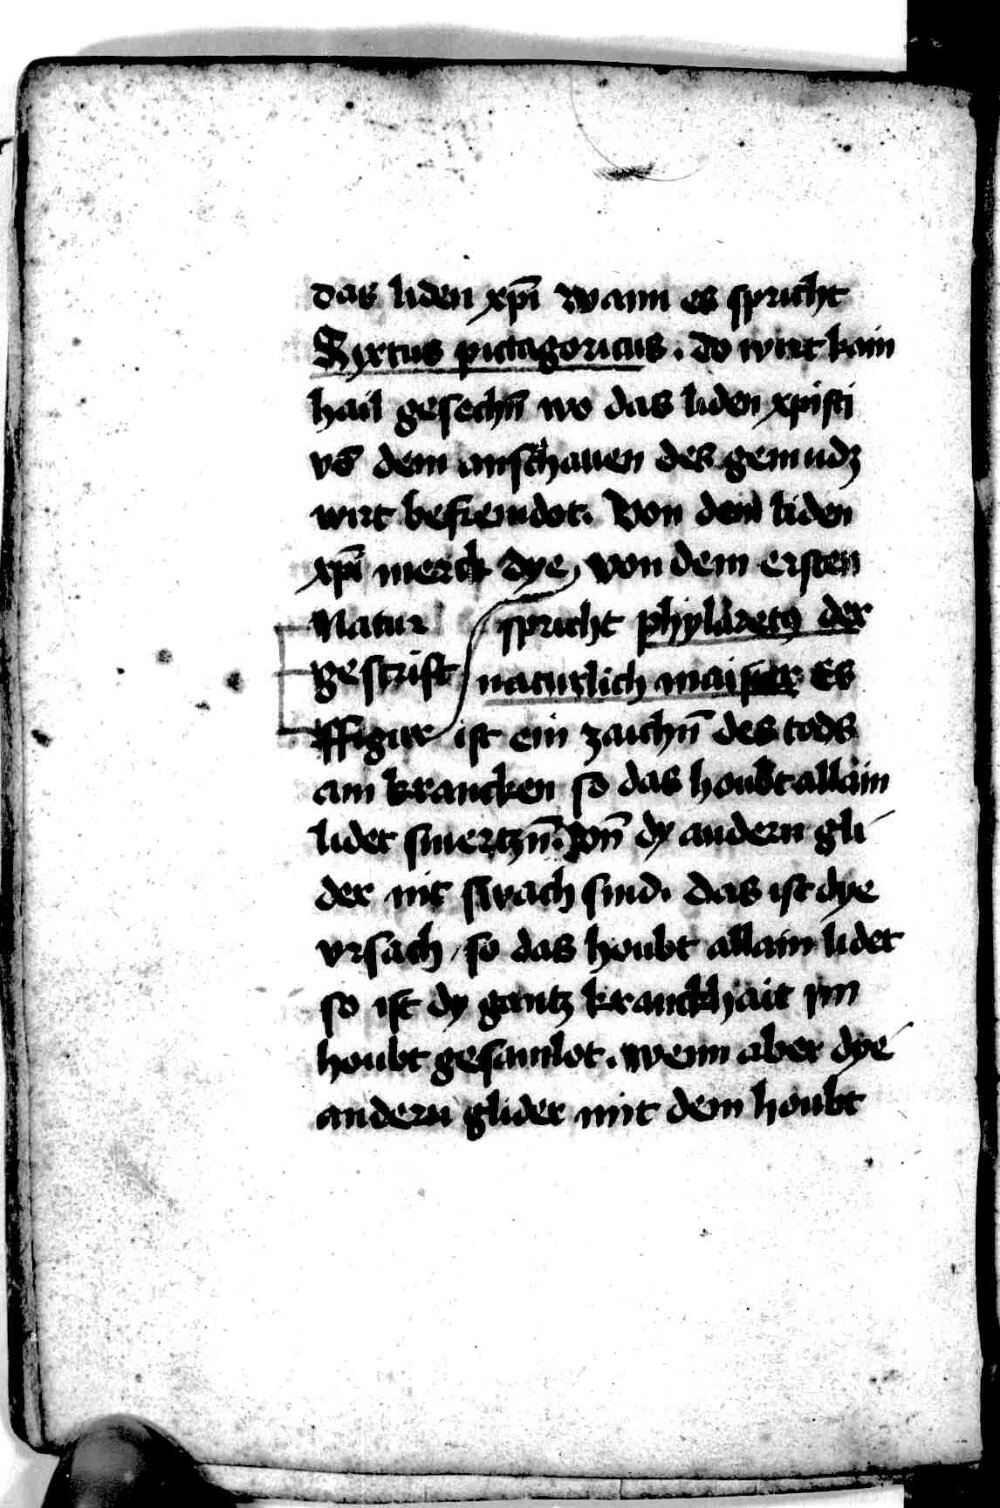 das liden xp̄i wann es spricht
Sixtus pictagoricus . do wirt kain
hail gesechn̄ wo das liden xpisti
vs dem anschauen des gemudz
wirt befremdot. Von dem liden
xp̄i merck dye, von dem ersten
Natur spricht phylaretꝰ der
gestrift naturlich maister Es
ffigur ist ein zaichn̄ des tods
am krancken so das houbt allain
lidet smertzn̄. Vn̄ dy andern gli
der nit swach sind. Das ist dye
vrsach / so das houbt allain lidet
so ist dy gantz kranckhait ym
houbt gesamlot . wenn aber dye
andern glider mit dem houbt